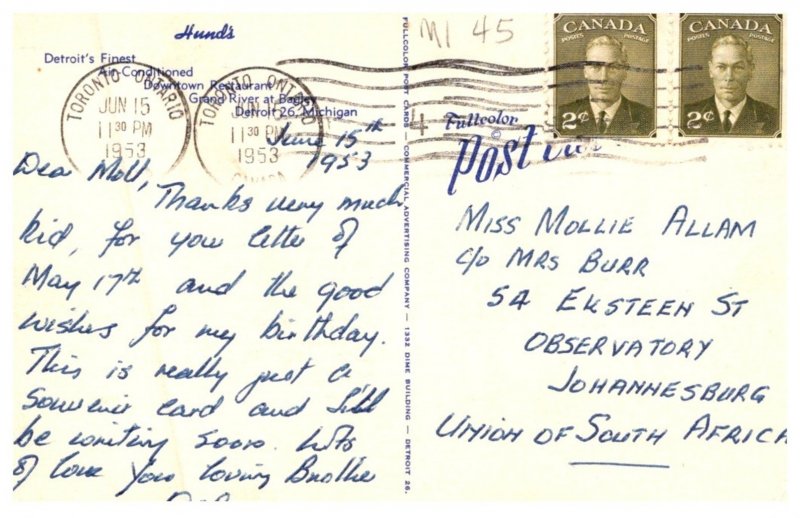 Hund's
Detroit's Finest
Air-Conditioned
Downtown Restaurant
Grand River at Bagley
Detroit 26, Michigan
TORONTO ONTARIO
JUN 15
11 30 PM
1953
TORONTO ONTARIO
JUN 15
11 30 PM
1953
CANADA
June 15th
1953
Dear Moll,
Thanks very much
kid, for your letter of
May 17th and the good
wishes for my birthday.
This is really just a
souvenir card and I'll
be writing soon. Lots
of love Your loving Brother
FULLCOLOR POST CARDS — COMMERCIAL ADVERTISING COMPANY — 1332 DIME BUILDING — DETROIT 26.
MI 45
CANADA
POSTES POSTAGE
2¢
CANADA
POSTES POSTAGE
2¢
Fullcolor
©
Post
MISS MOLLIE ALLAM
c/o MRS BURR
54 EKSTEEN ST
OBSERVATORY
JOHANNESBURG
UNION OF SOUTH AFRICA